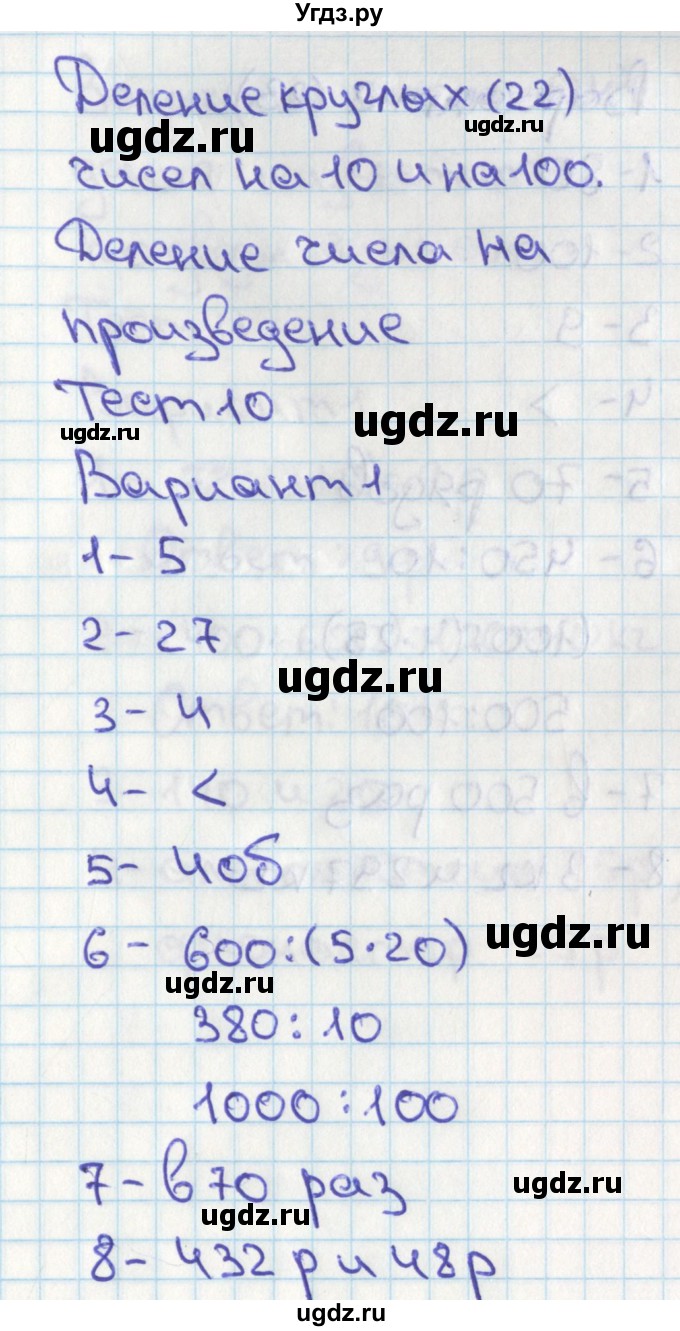 Угдз.ру
Деление круглых (22)
ugdz.ru
ugdz.ru
чисел на 10 и на 100.
Деление числа на
произведение
Тест 10
ugdz.ru
ugdz.ru
Вариант 1
1- 5
2- 27
ugdz.ru
3- 4
4- <
5- 4 об
6- 600:(5·20)
ugdz.ru
ugdz.ru
380:10
1000:100
7- в 70 раз
ugdz.ru
ugdz.ru
8- 432 р и 48 р
ugdz.ru